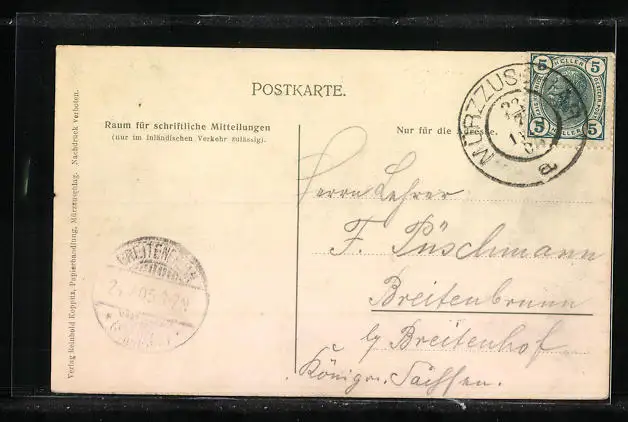 POSTKARTE.
Raum für schriftliche Mitteilungen
(nur im inländischen Verkehr zulässig).
Nur für die Adresse.
5 HELLER 5
5 HELLER 5
MÜRZZUSCHLAG
a
Herrn Lehrer
F. Püschmann
Breitenbrunn
b/ Breitenhof
Königr. Sachsen.
BREITENBRUNN
Verlag Reinhold Koppitz, Papierhandlung, Mürzzuschlag. Nachdruck verboten.